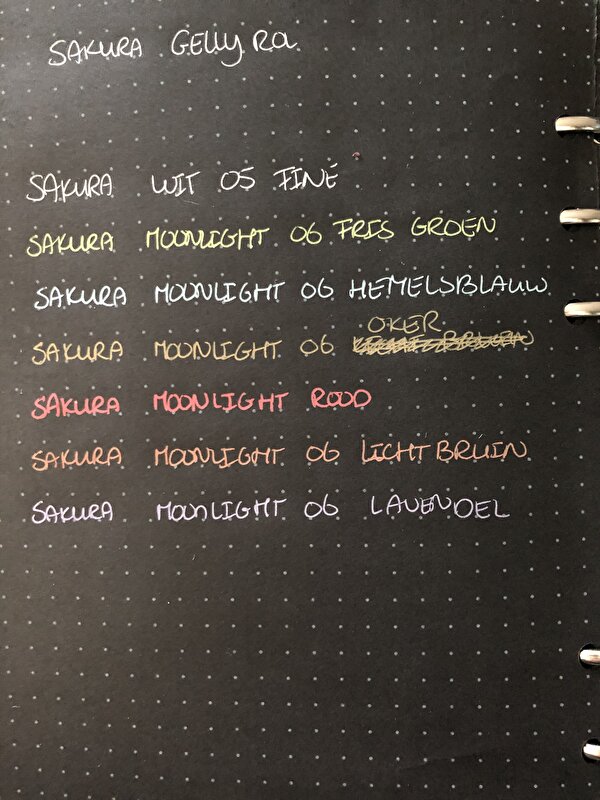 SAKURA GELLY ROL
SAKURA WIT 05 FINE
SAKURA MOONLIGHT 06 FRIS GROEN
SAKURA MOONLIGHT 06 HEMELSBLAUW
SAKURA MOONLIGHT 06 OKER
SAKURA MOONLIGHT ROOD
SAKURA MOONLIGHT 06 LICHTBRUIN
SAKURA MOONLIGHT 06 LAVENDEL